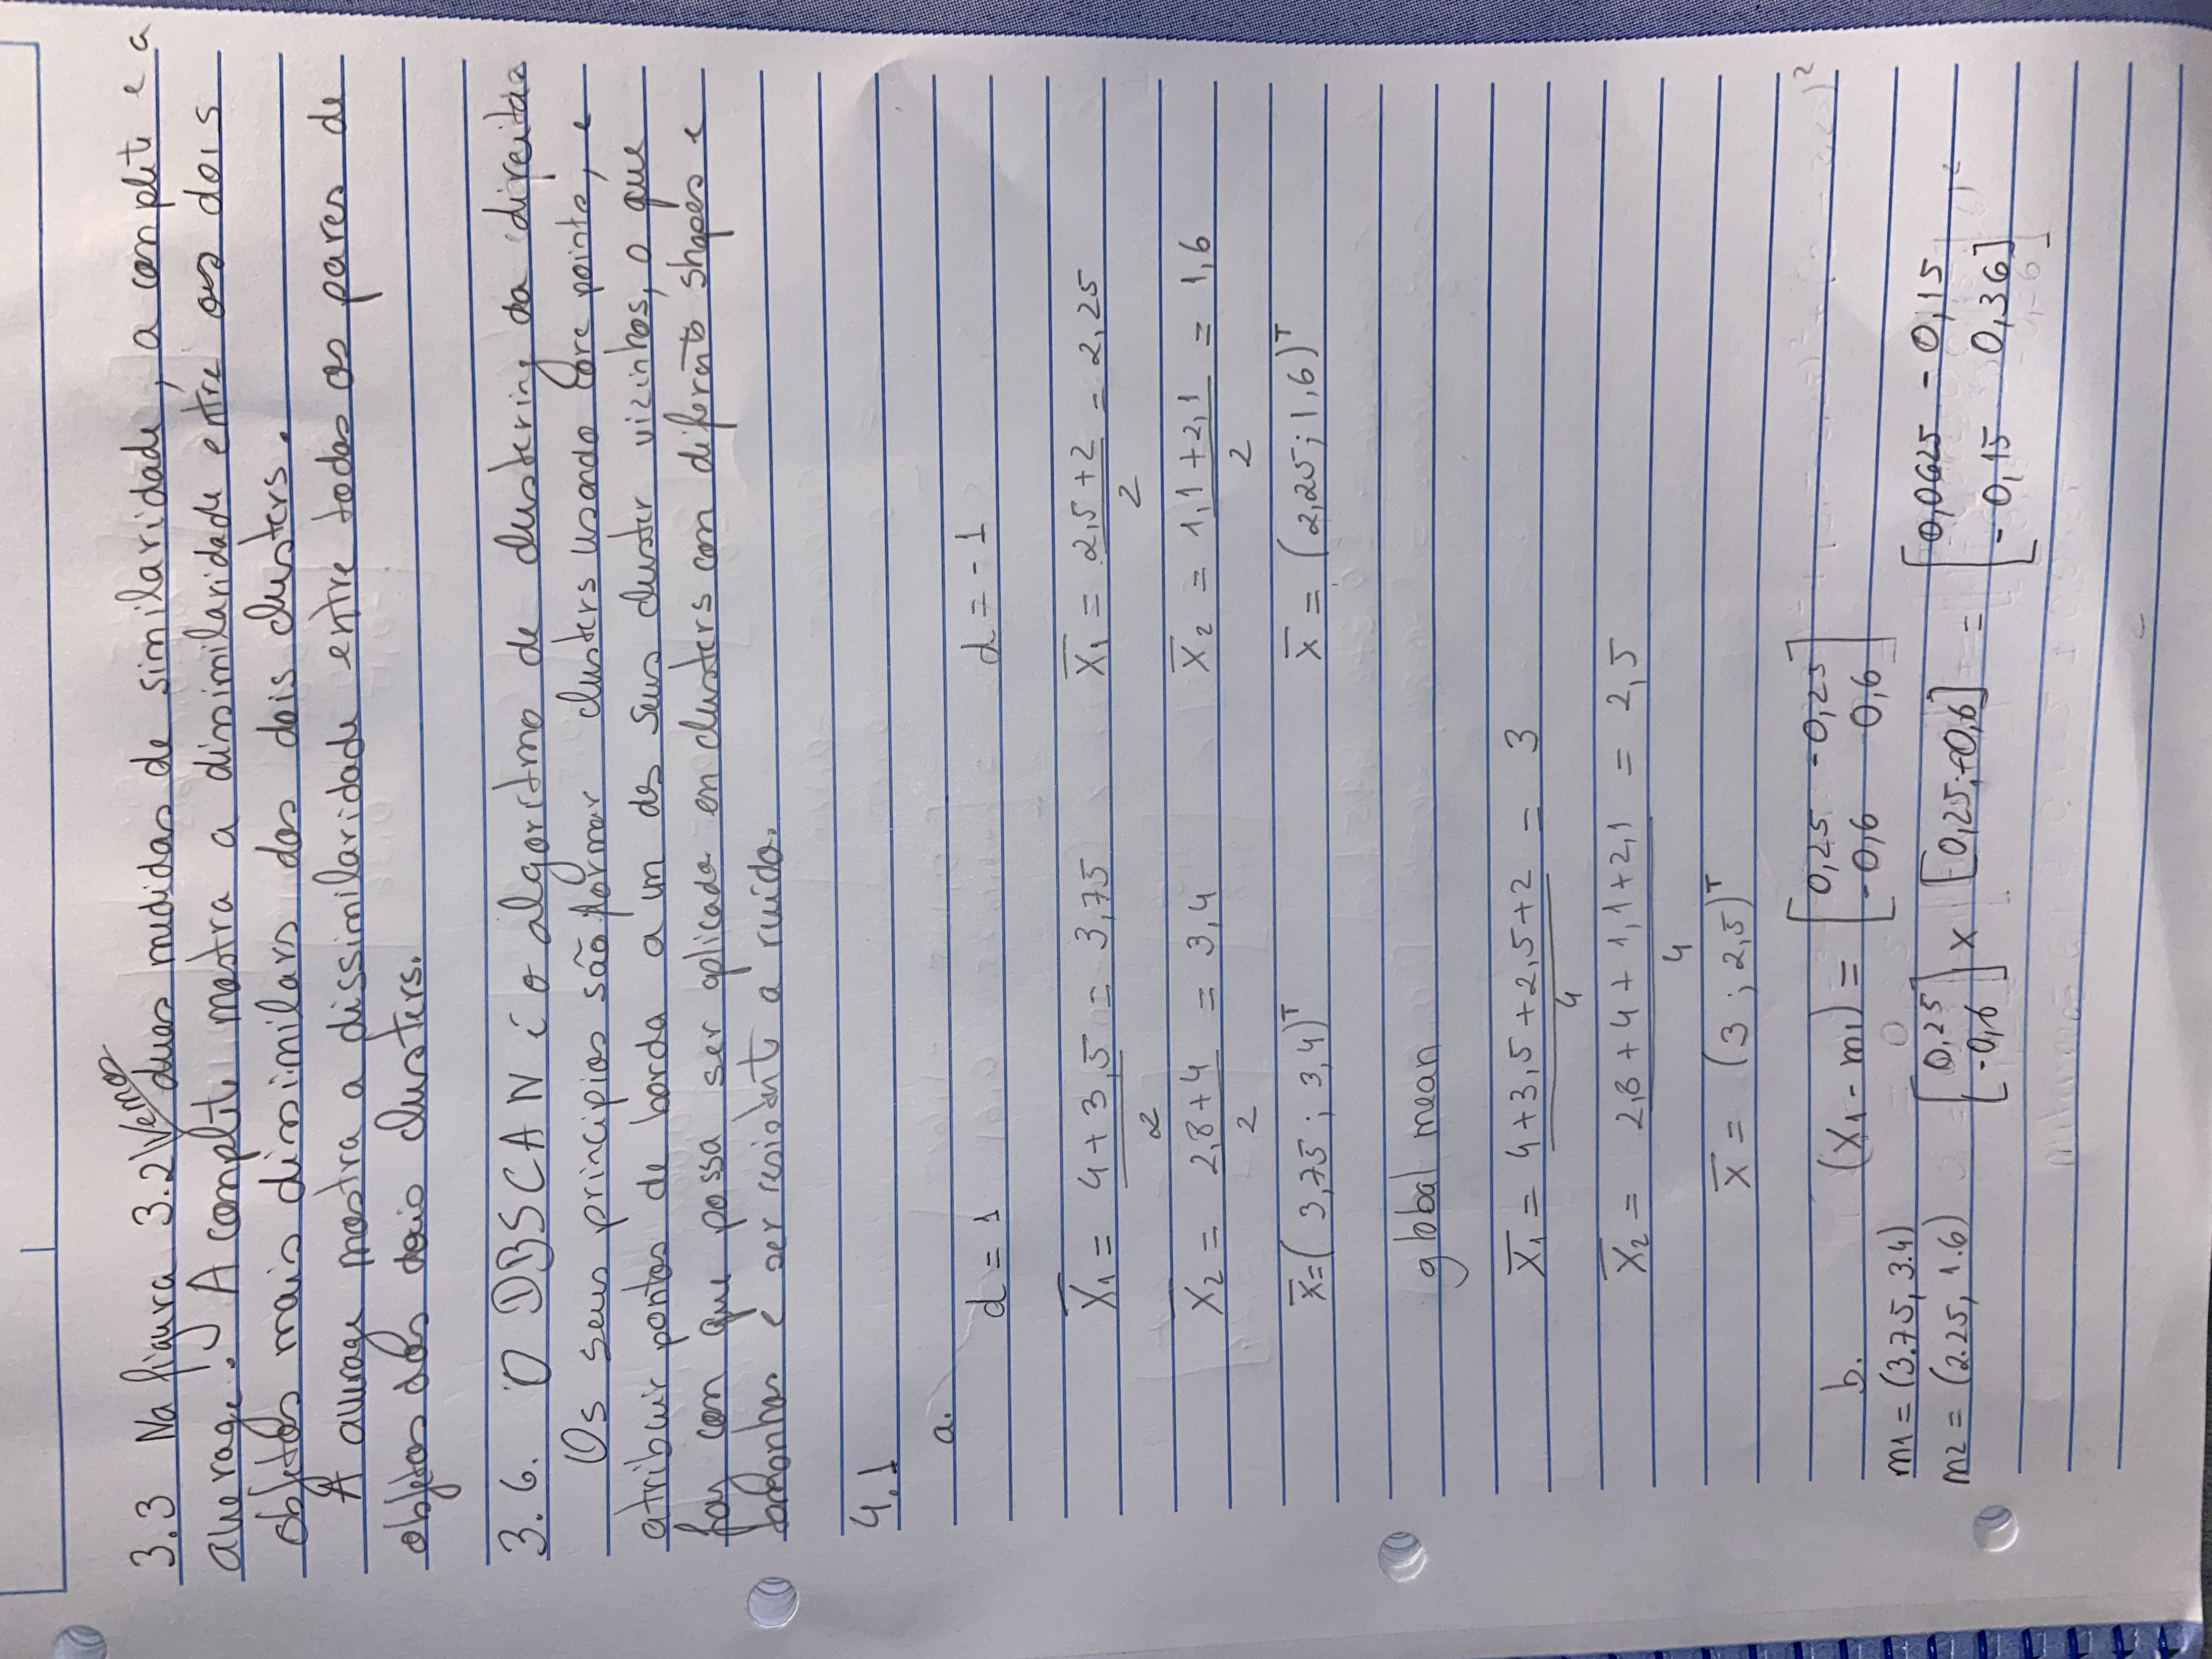 3.3 Na figura 3.2 Vemos duas medidas de similaridade, a complete e a
average. A complete mostra a dissimilaridade entre os dois
objetos mais dissimilares dos dois clusters.
A average mostra a dissimilaridade entre todos os pares de
objetos dos dois clusters.
3.6. O DBSCAN é o algoritmo de clustering da direita
Os seus principios são formar clusters usando core points, e
atribuir pontos de borda a um dos seus cluster vizinhos, o que
faz com que possa ser aplicado em clusters com diferents shapes e
tamanhos e ser resistente a ruído.
4.1
a.
d = 1 d = -1
X̄1 = (4+3,5)/2 = 3,75 X̄1 = (2,5+2)/2 = 2,25
X̄2 = (2,8+4)/2 = 3,4 X̄2 = (1,1+2,1)/2 = 1,6
x̄ = (3,75 ; 3,4)ᵀ x̄ = (2,25 ; 1,6)ᵀ
global mean
X̄1 = (4+3,5+2,5+2)/4 = 3
X̄2 = (2,8+4+1,1+2,1)/4 = 2,5
x̄ = (3 ; 2,5)ᵀ
b. (X1 - m1) = [0,25 -0,25
-0,6 0,6]
m1 = (3.75, 3.4)
m2 = (2.25, 1.6) [0,25
-0,6] x [0,25; -0,6] = [0,0625 -0,15
-0,15 0,36]